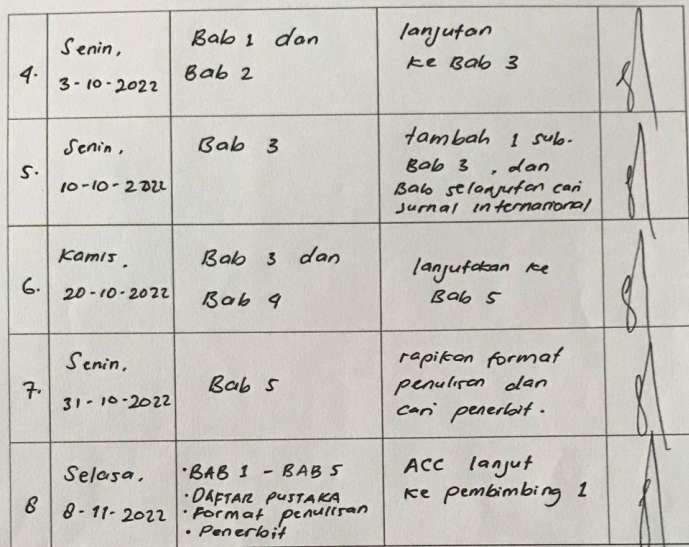 4.
Senin,
3-10-2022
Bab 1 dan
Bab 2
lanjutan
ke Bab 3
5.
Senin,
10-10-2022
Bab 3
tambah 1 sub.
Bab 3, dan
Bab selanjutan cari
Jurnal internasional
6.
Kamis.
20-10-2022
Bab 3 dan
Bab 4
lanjutakan ke
Bab 5
7.
Senin.
31-10-2022
Bab 5
rapikan format
penulisan dan
cari penerbit.
8
Selasa.
8-11-2022
·BAB 1 - BAB 5
·DAFTAR PUSTAKA
·Format penulisan
·Penerbit
ACC lanjut
ke pembimbing 1